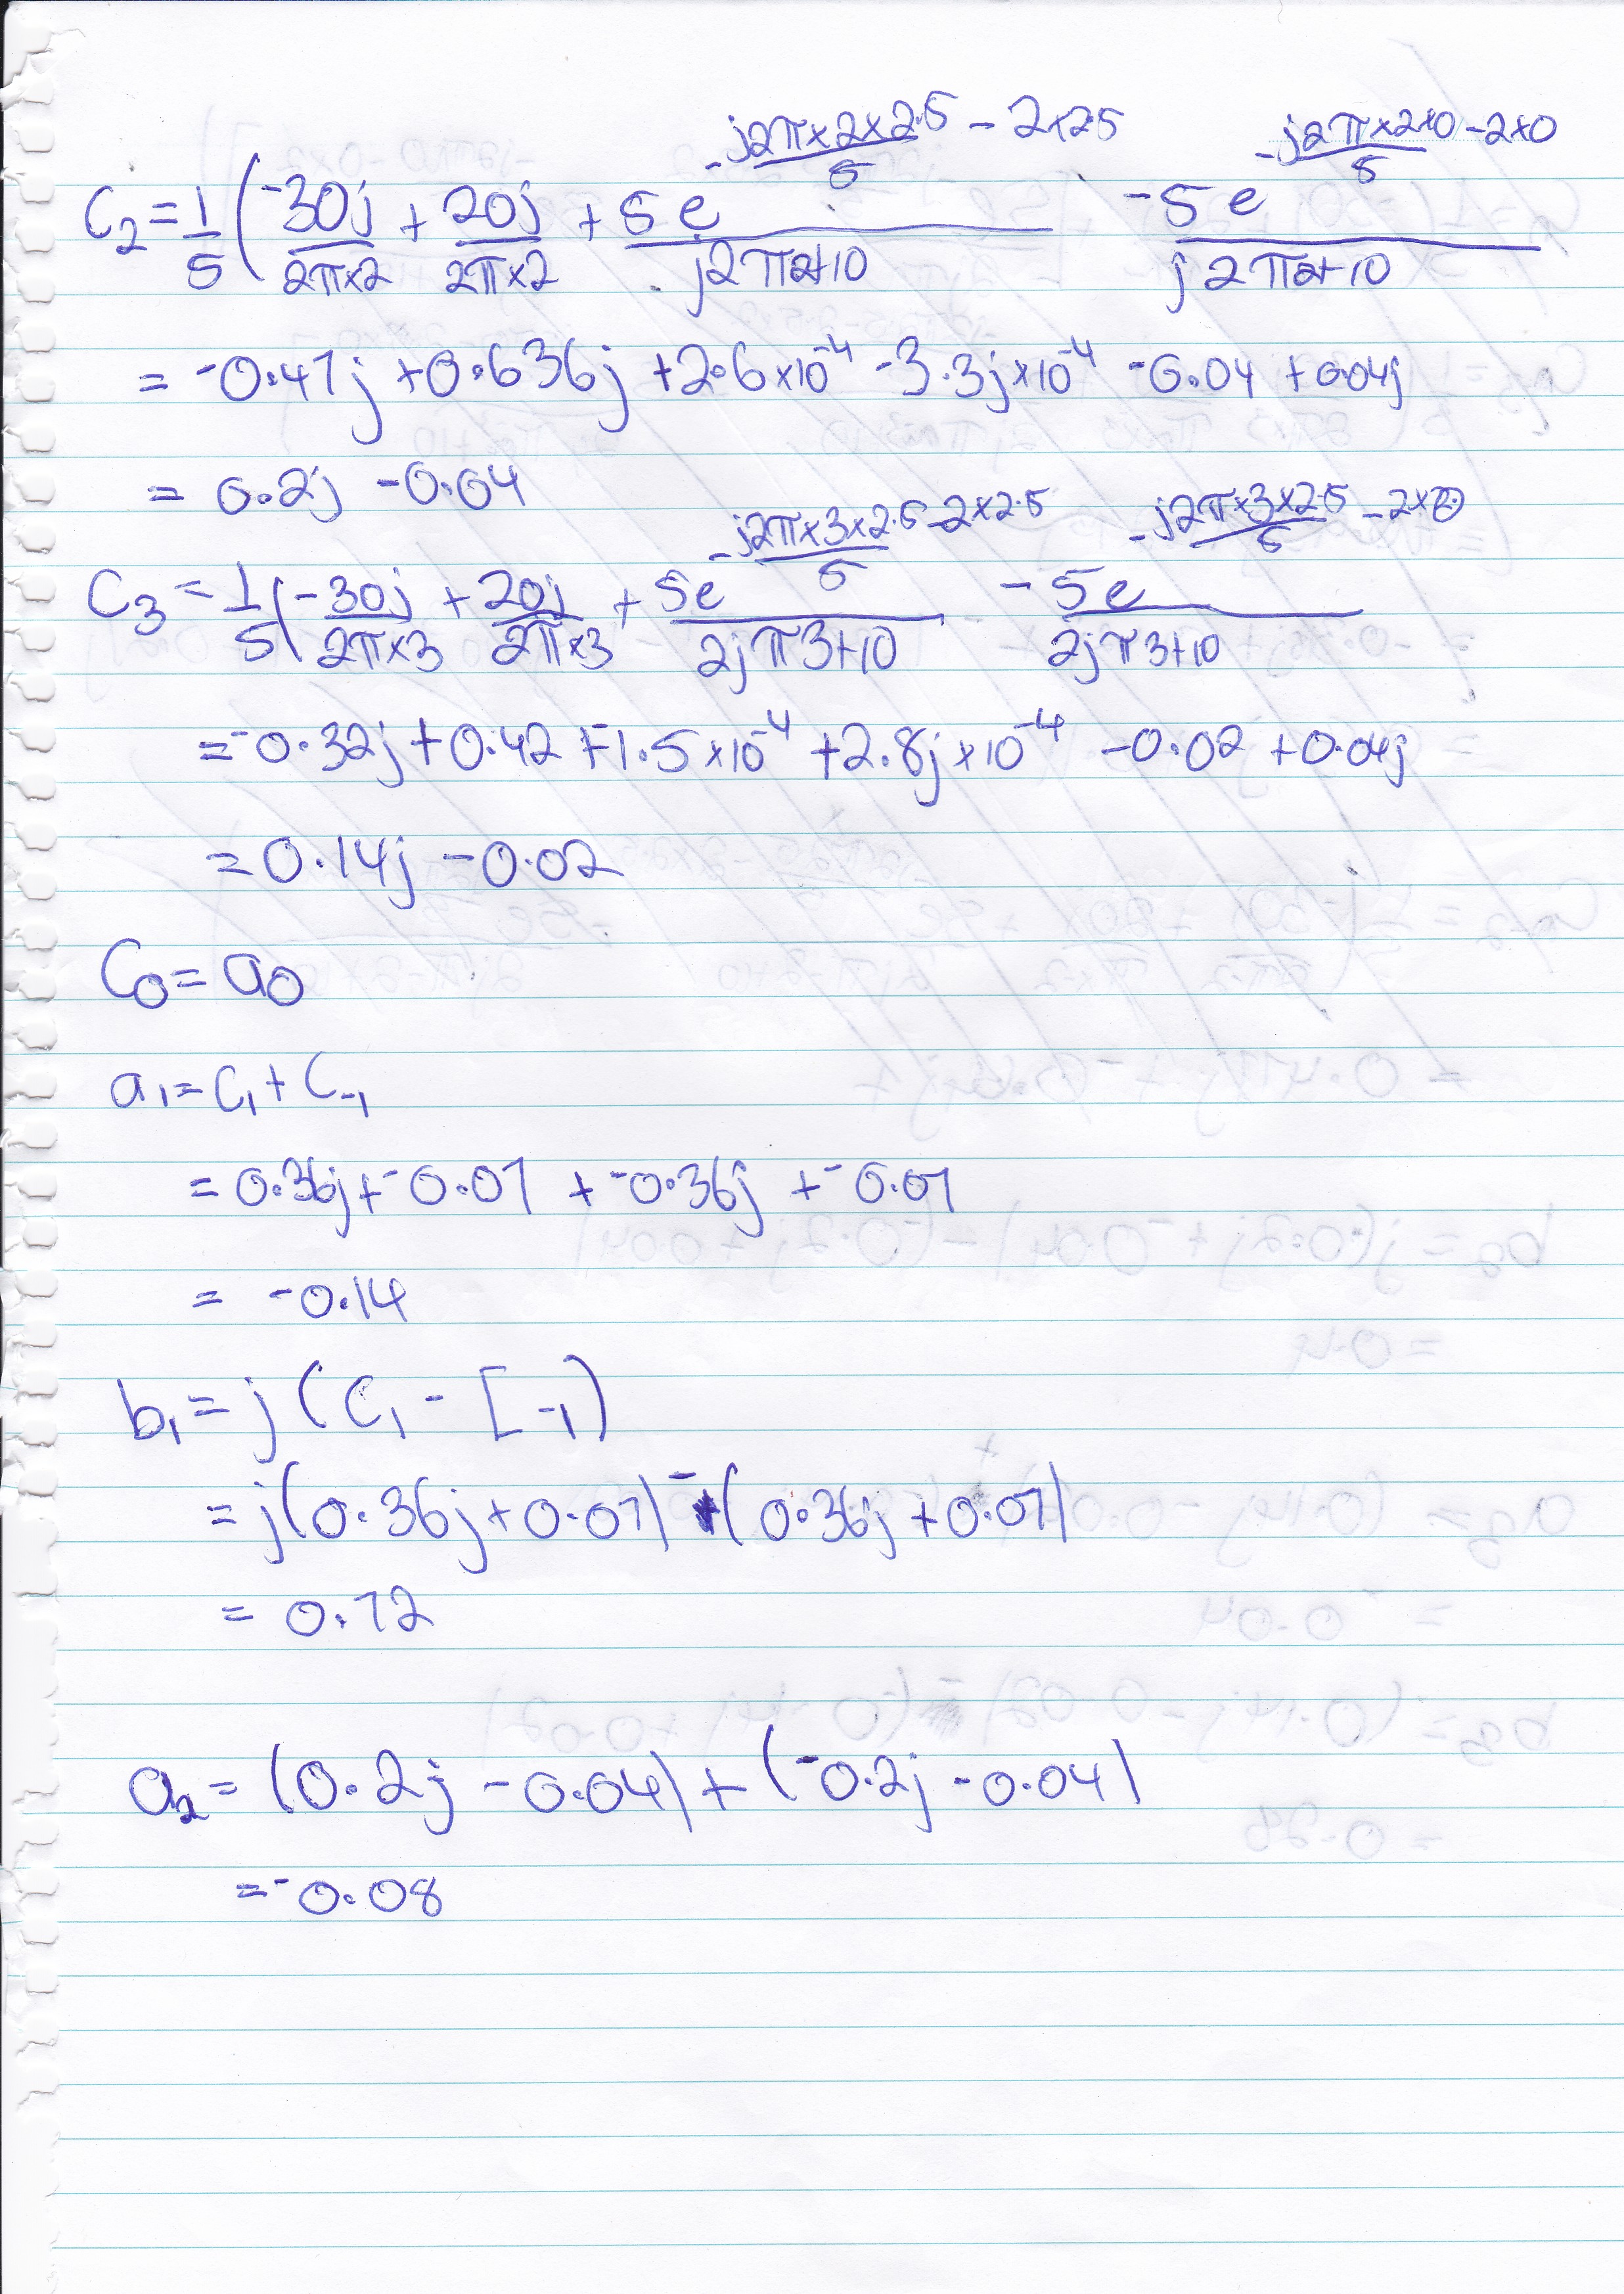 C₂ = 1/5 ( -30j/2π×2 + 20j/2π×2 + 5e^(-j2π×2×2.5/5 - 2×2.5)/j2π2+10 - 5e^(-j2π×2×0/5 - 2×0)/j2π2+10
= -0.47j + 0.636j + 2.6×10⁻⁴ - 3.3j×10⁻⁴ - 0.04 + 0.04j
= 0.2j - 0.04
C₃ = 1/5 ( -30j/2π×3 + 20j/2π×3 + 5e^(-j2π×3×2.5/5 - 2×2.5)/2jπ3+10 - 5e^(-j2π×3×2.5/5 - 2×0)/2jπ3+10
= -0.32j + 0.42 + -1.5×10⁻⁴ + 2.8j×10⁻⁴ - 0.02 + 0.04j
= 0.14j - 0.02
C₀ = a₀
a₁ = C₁ + C₋₁
= 0.36j + -0.07 + -0.36j + -0.07
= -0.14
b₁ = j (C₁ - [₋₁)
= j(0.36j + 0.07) - (0.36j + 0.07)
= 0.72
a₂ = (0.2j - 0.04) + (-0.2j - 0.04)
= -0.08